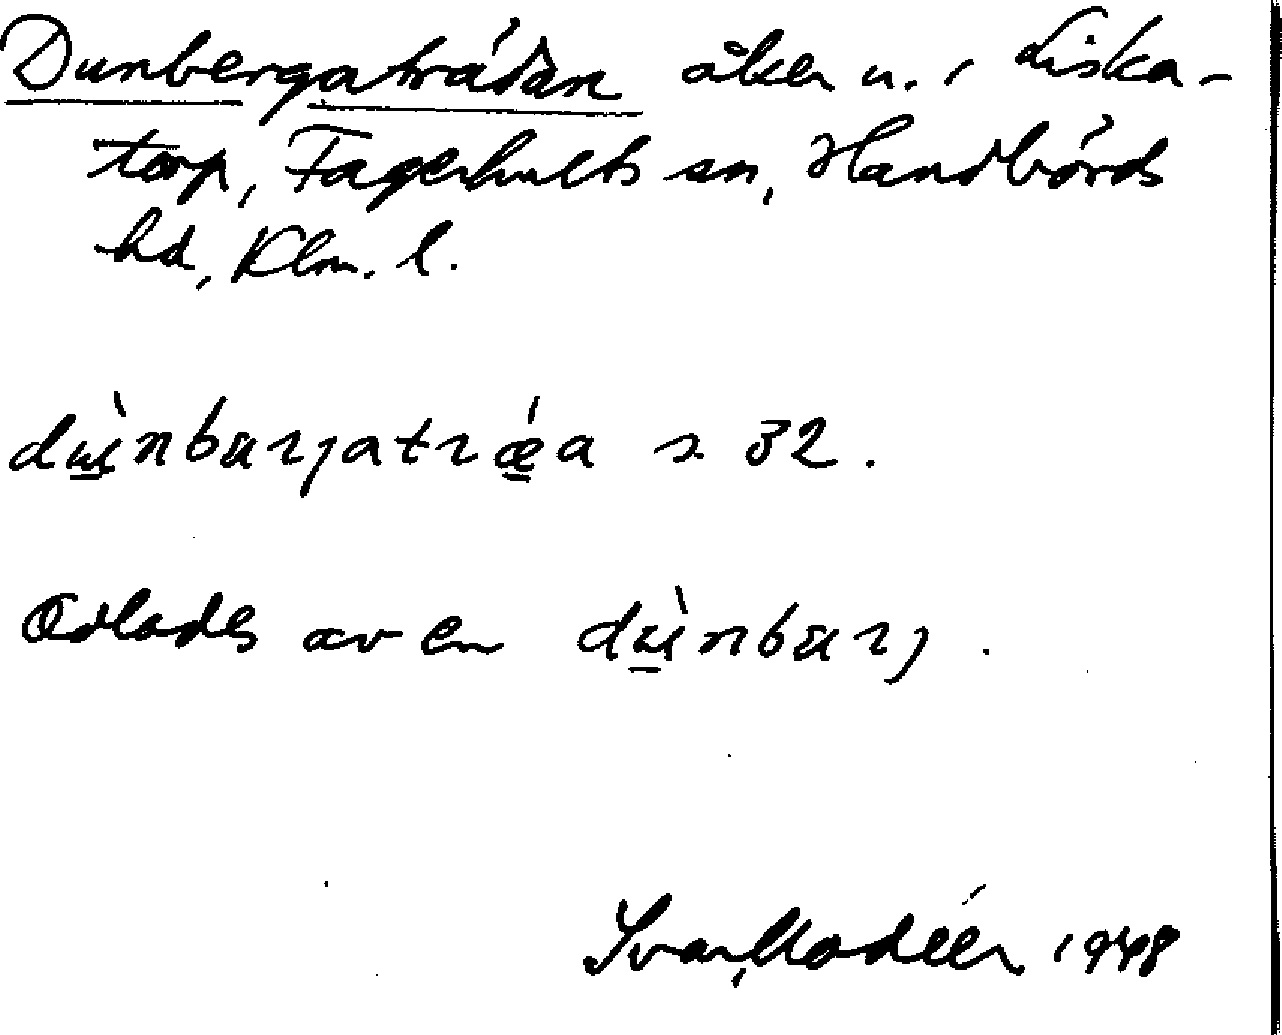 Dunbergaträdan åker n. i Liska-
torp, Fagerhults sn, Handbörds
hd, Klm. l.
dùnbärjatræ̀a s 32.
Odlades av en dùnbärj.
Ivar Modéer 1948